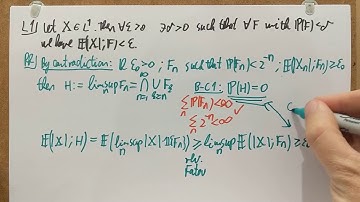 L1) Let X ∈ L¹. Then ∀ε>0 ∃δ>0 such that ∀F with P(F)<δ
we have E(|X|;F)<ε.
Pf) By contradiction: ε₀>0; Fₙ such that P(Fₙ)<2⁻ⁿ; E(|X|;Fₙ)≥ε₀
then H := limsup Fₙ = ∩ ∪ Fₖ B-C1: P(H)=0
Σ P(Fₙ)<∞ ✓
Σ 2⁻ⁿ<∞
E(|X|;H) = E(limsup |X| 1(Fₙ)) ≥ limsup E(|X|;Fₙ) ≥ ε₀
rev.
Fatou